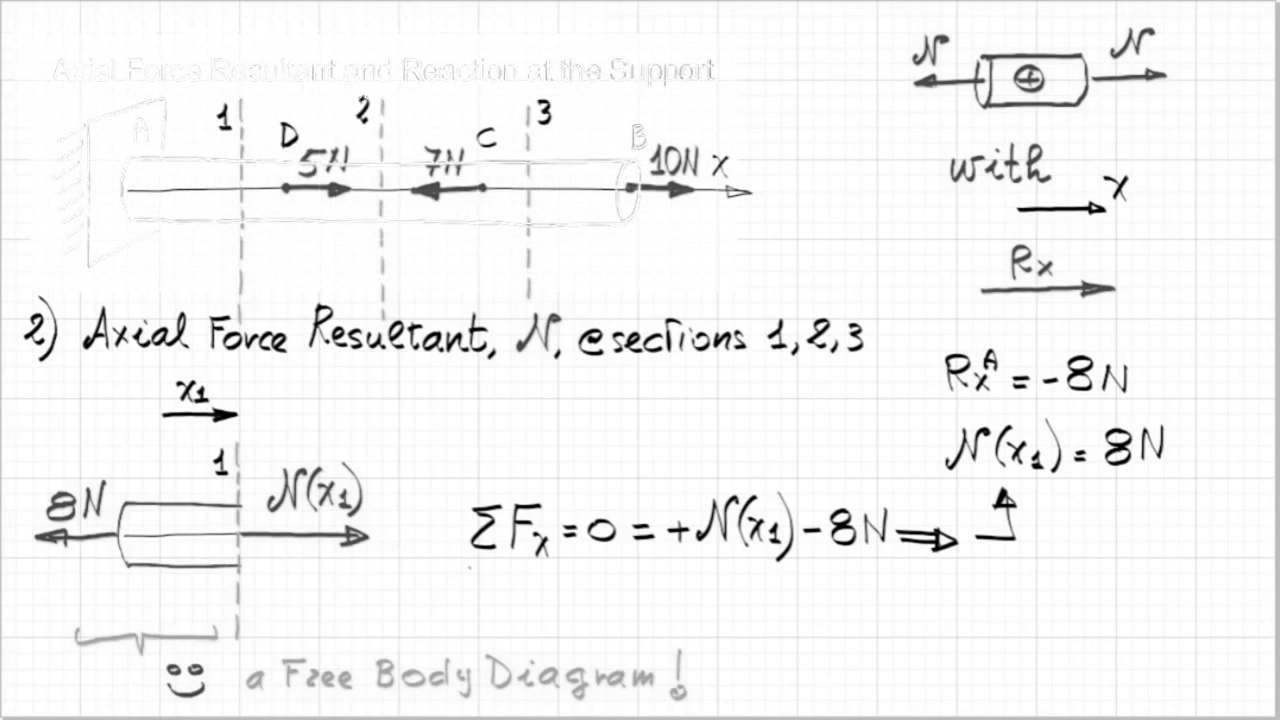 Axial Force Resultant and Reaction at the Support
N N
A 1 D 5N 2 7N C 3 B 10N x
with
x
Rx
2) Axial Force Resultant, N, @ sections 1, 2, 3
RxA = -8N
x1
N(x1) = 8N
8N 1 N(x1)
ΣFx = 0 = +N(x1) - 8N ⇒
a Free Body Diagram!